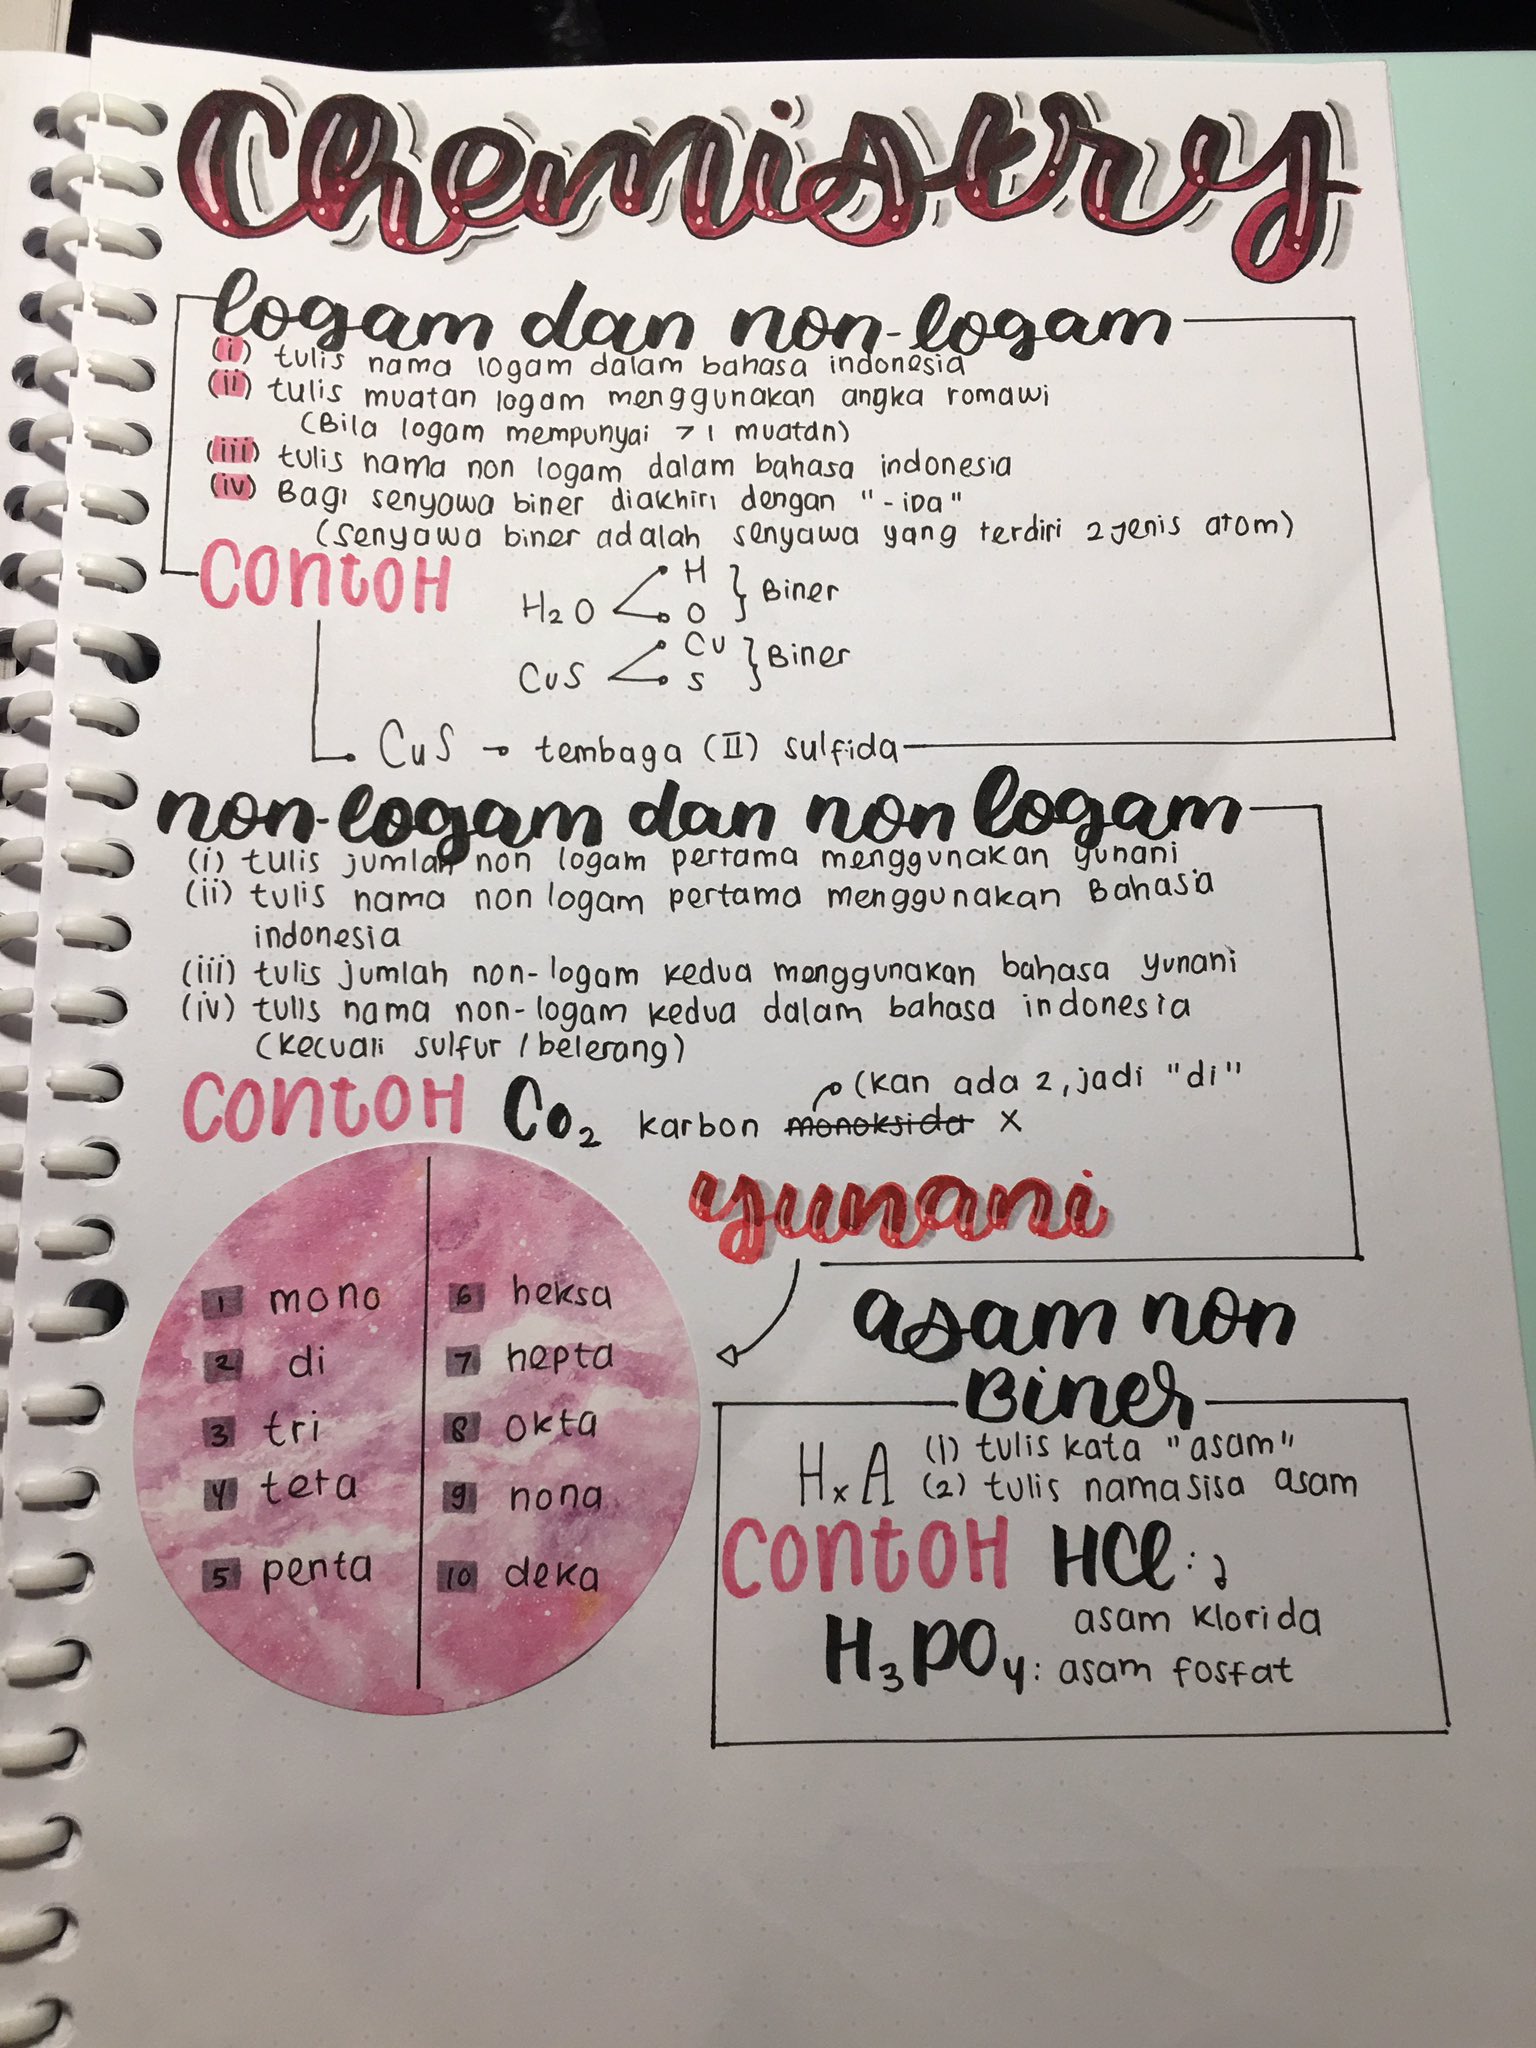 Chemistry
logam dan non-logam
(i) tulis nama logam dalam bahasa indonesia
(ii) tulis muatan logam menggunakan angka romawi
(Bila logam mempunyai > 1 muatan)
(iii) tulis nama non logam dalam bahasa indonesia
(iv) Bagi senyawa biner diakhiri dengan "-iDa"
(senyawa biner adalah senyawa yang terdiri 2 jenis atom)
CONTOH
H₂O H O } Biner
CuS Cu S } Biner
CuS → tembaga (II) sulfida
non-logam dan non logam
(i) tulis jumlah non logam pertama menggunakan yunani
(ii) tulis nama non logam pertama menggunakan Bahasa
indonesia
(iii) tulis jumlah non-logam kedua menggunakan bahasa yunani
(iv) tulis nama non-logam kedua dalam bahasa indonesia
(kecuali sulfur / belerang)
(kan ada 2, jadi "di"
CONTOH CO₂ karbon monoksida X
yunani
1 mono
2 di
3 tri
4 teta
5 penta
6 heksa
7 hepta
8 okta
9 nona
10 deka
asam non
Biner
HₓA (1) tulis kata "asam"
(2) tulis nama sisa asam
CONTOH HCl :
asam klorida
H₃PO₄ : asam fosfat